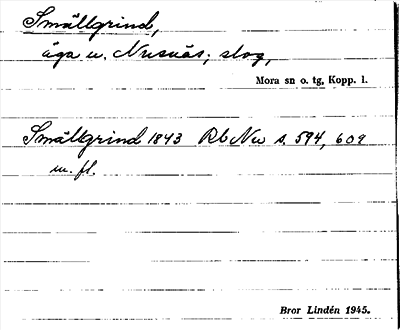 Smällgrind,
äga u. Nusnäs; skog,
Mora sn o. tg, Kopp. l.
Smällgrind 1843 Rb Nu s. 594, 609
m. fl.
Bror Lindén 1945.